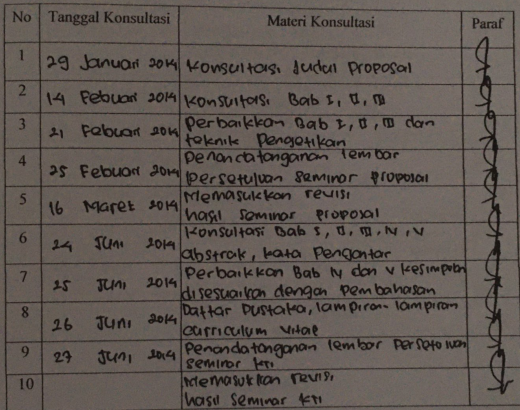 No Tanggal Konsultasi Materi Konsultasi Paraf
1 29 Januari 2014 Konsultasi Judul Proposal
2 14 Febuari 2014 Konsultasi Bab I, II, III
3 21 Febuari 2014 Perbaikkan Bab I, II, III dan
teknik Pengetikan
4 25 Febuari 2014 Penandatanganan lembar
Persetujuan Seminar Proposal
5 16 Maret 2014 Memasukkan revisi
hasil Seminar Proposal
6 24 Juni 2014 Konsultasi Bab I, II, III, IV, V
abstrak, kata Pengantar
7 25 Juni 2014 Perbaikkan Bab IV dan V kesimpulan
disesuaikan dengan Pembahasan
8 26 Juni 2014 Daftar Pustaka, lampiran-lampiran
curriculum vitae
9 27 Juni 2014 Penandatanganan lembar Persetujuan
Seminar KTI
10 Memasukkan revisi
hasil Seminar KTI